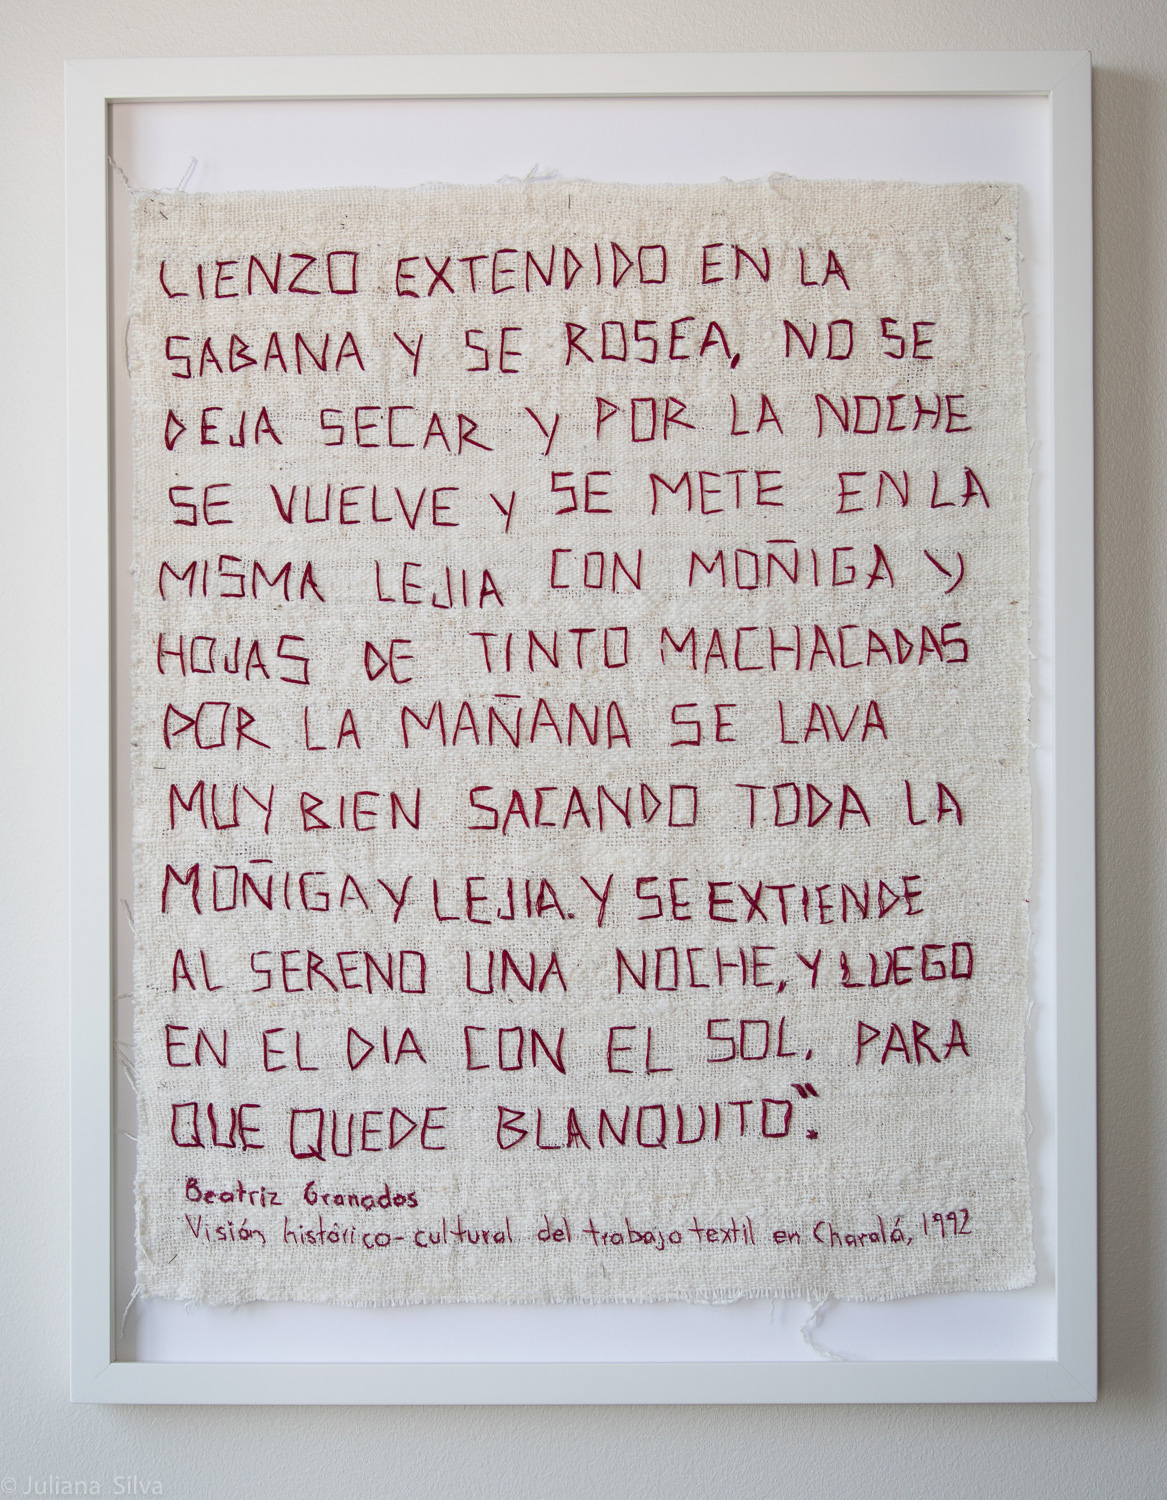 LIENZO EXTENDIDO EN LA
SABANA Y SE ROSEA, NO SE
DEJA SECAR Y POR LA NOCHE
SE VUELVE Y SE METE EN LA
MISMA LEJIA CON MOÑIGA Y
HOJAS DE TINTO MACHACADAS
POR LA MAÑANA SE LAVA
MUY BIEN SACANDO TODA LA
MOÑIGA Y LEJIA. Y SE EXTIENDE
AL SERENO UNA NOCHE, Y LUEGO
EN EL DIA CON EL SOL, PARA
QUE QUEDE BLANQUITO".
Beatriz Granados
Visión histórico-cultural del trabajo textil en Charalá, 1992
©Juliana Silva